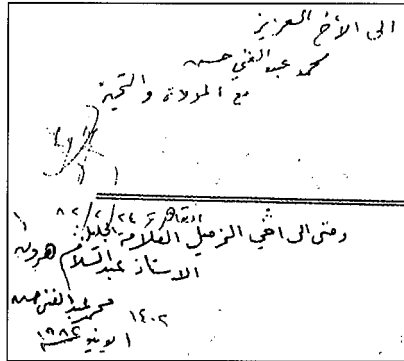 الى الأخ العزيز
محمد عبد الغني حسن
مع المودة والتحية
القاهرة ٨٢/٢/٢٤
ومنى الى أخي الزميل العلامة الجليل
الاستاذ عبد السلام هرون
محمد عبد الغني حسن
١٤٠٢
١ يونيو ١٩٨٢